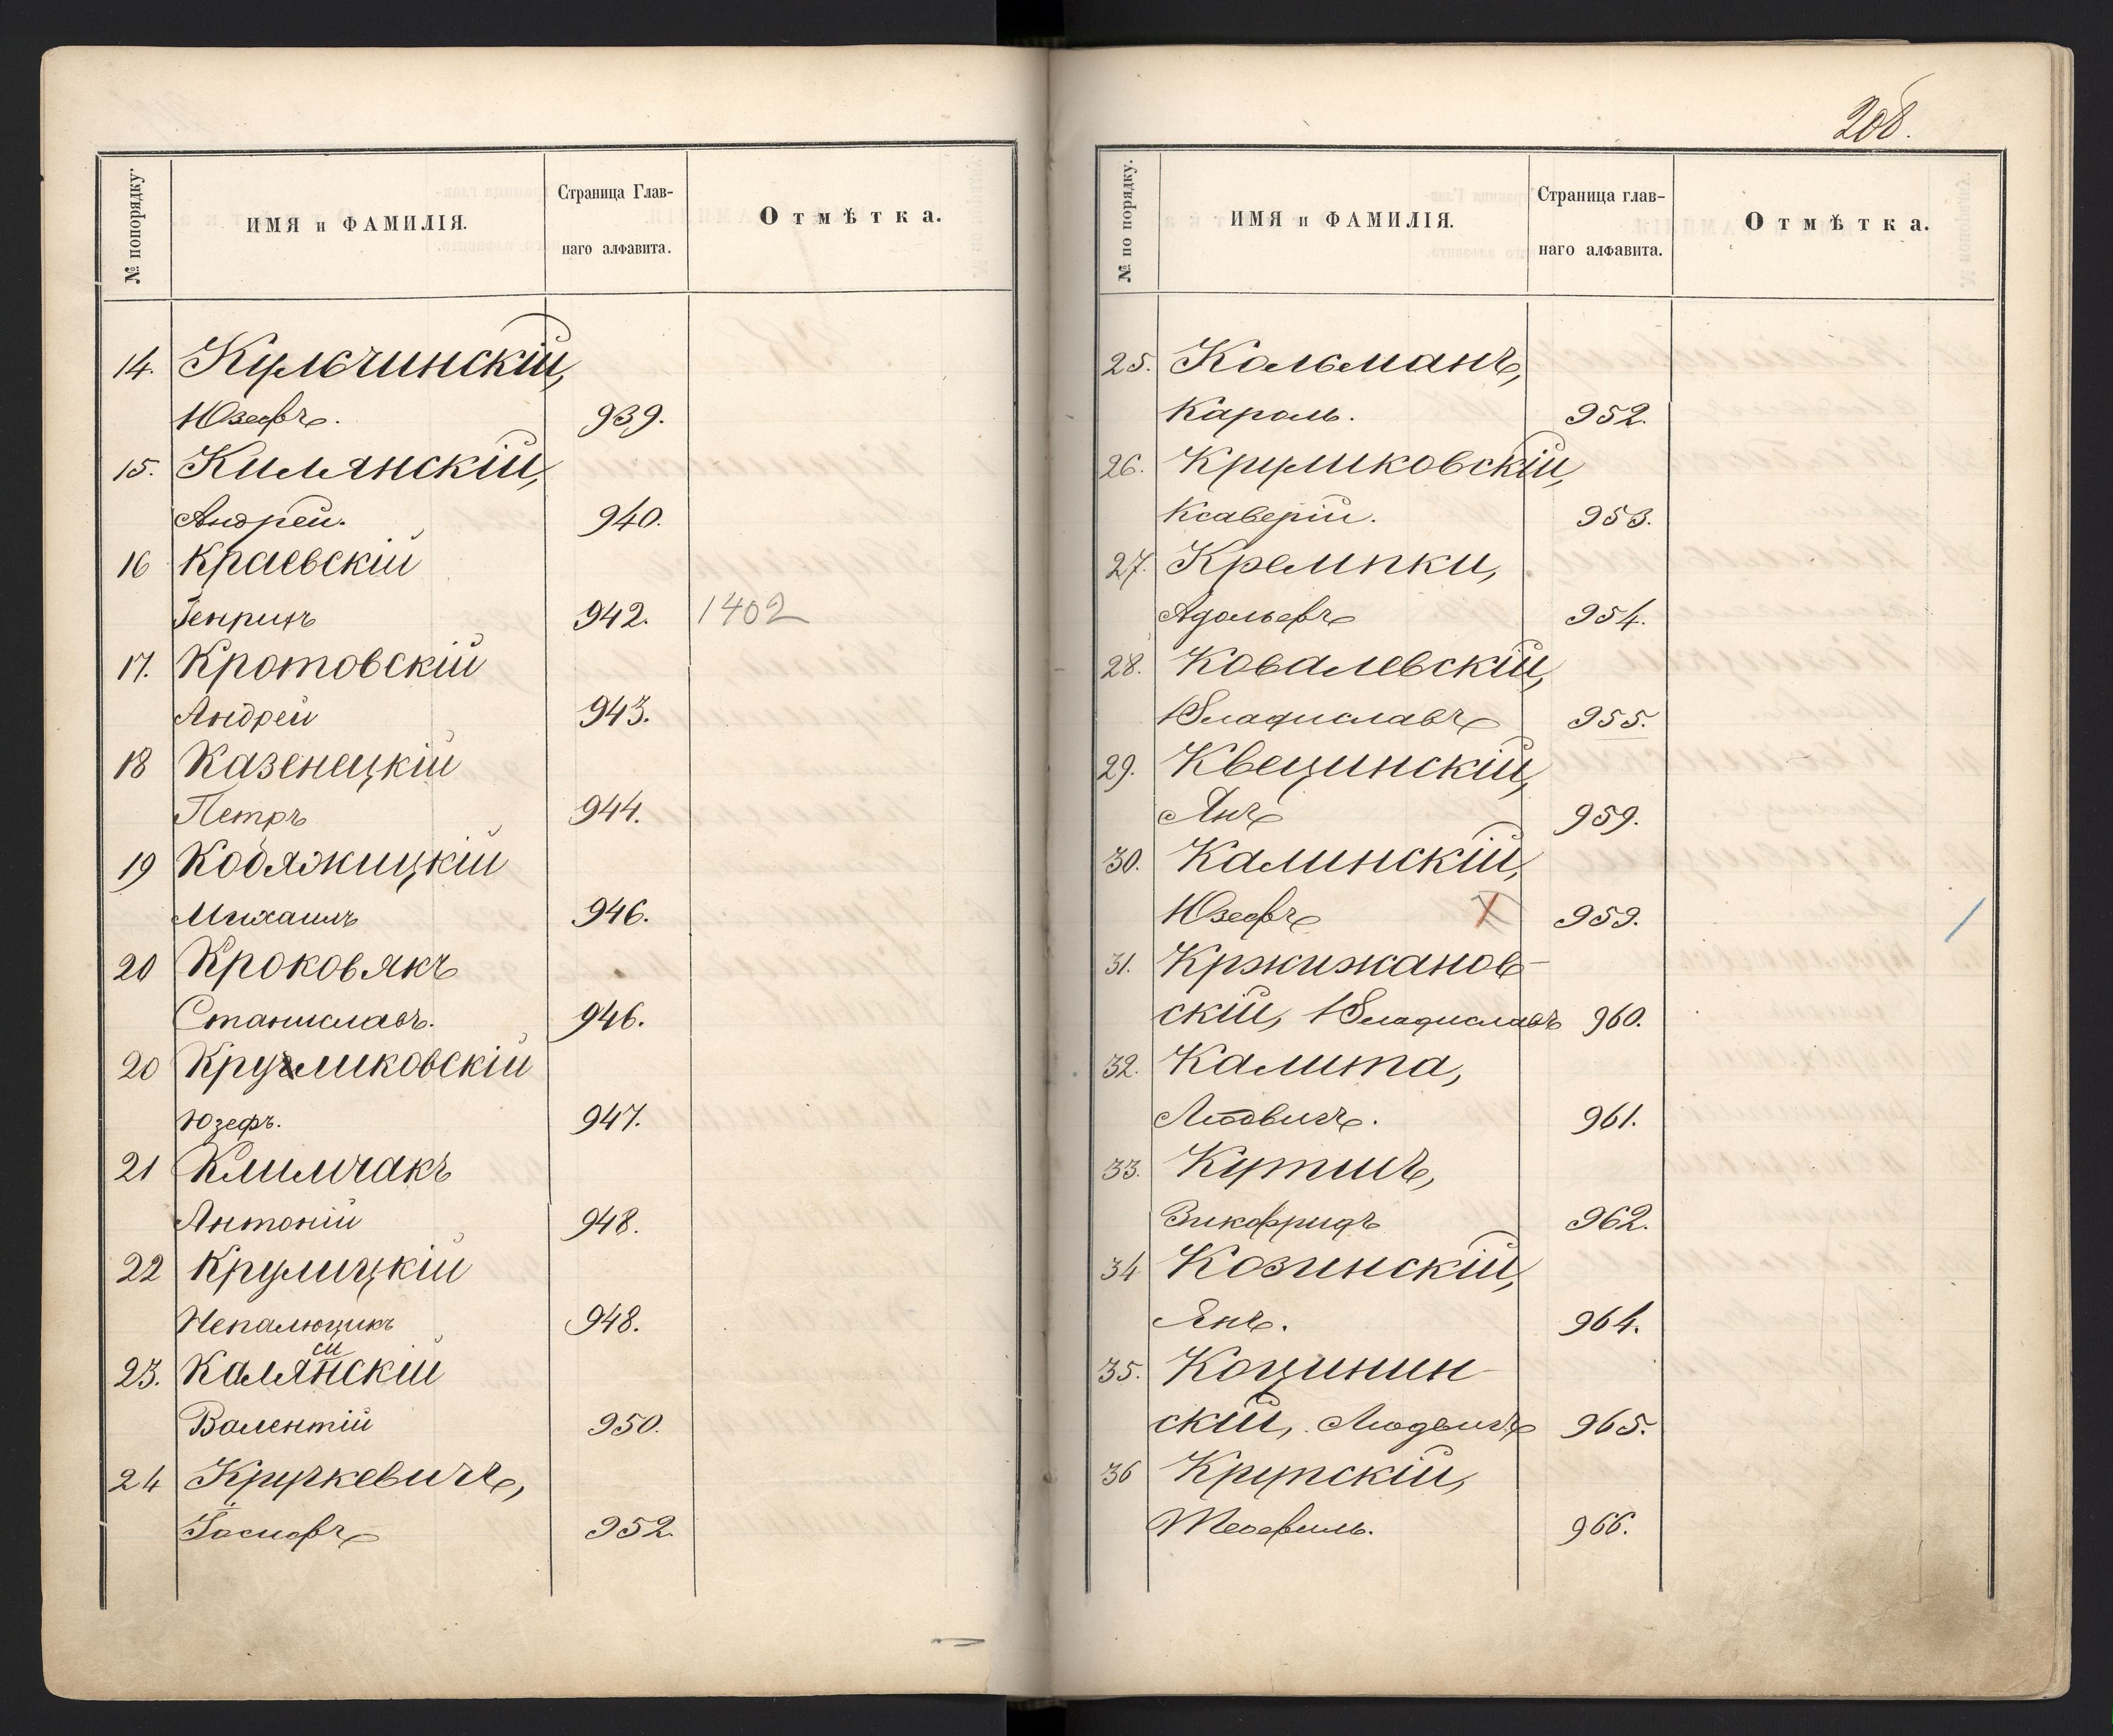 № попорядку.
ИМЯ и ФАМИЛІЯ.
Страница Глав-
наго алфавита.
Отмѣтка.
14. Кульчинскій,
Юзефъ. 939.
15. Килянскій,
Андрей. 940.
16 Краевскій
Генрихъ 942. 1402
17. Кротовскій
Андрей 943.
18 Казенецкій
Петръ 944.
19 Кобяжицкій
Михаилъ 946.
20 Кроковякъ
Станиславъ. 946.
20 Круликовскій
Юзефъ. 947.
21 Климчакъ
Антоній 948.
22 Крулицкій
948.
23. Калянскій
си
Валентій 950.
24 Кручкевичъ,
Іосифъ 952.
208.
№ по порядку.
ИМЯ и ФАМИЛІЯ.
Страница глав-
наго алфавита.
Отмѣтка.
25. Кольманъ,
Кароль. 952.
26. Круликовскій,
Ксаверій. 953.
27. Кремпки,
Адольфъ 954.
28. Ковалевскій,
Владиславъ 955.
29. Квецинскій,
Янъ 959.
30. Калинскій,
Юзефъ 959.
31. Кржижанов-
скій, Владиславъ 960.
32. Калита,
Людвигъ. 961.
33. Кутшъ,
Зикфридъ 962.
34 Козинскій,
Янъ. 964.
35. Коцинин
скій, Людвигъ 965.
36 Крупскій,
Теофиль. 966.